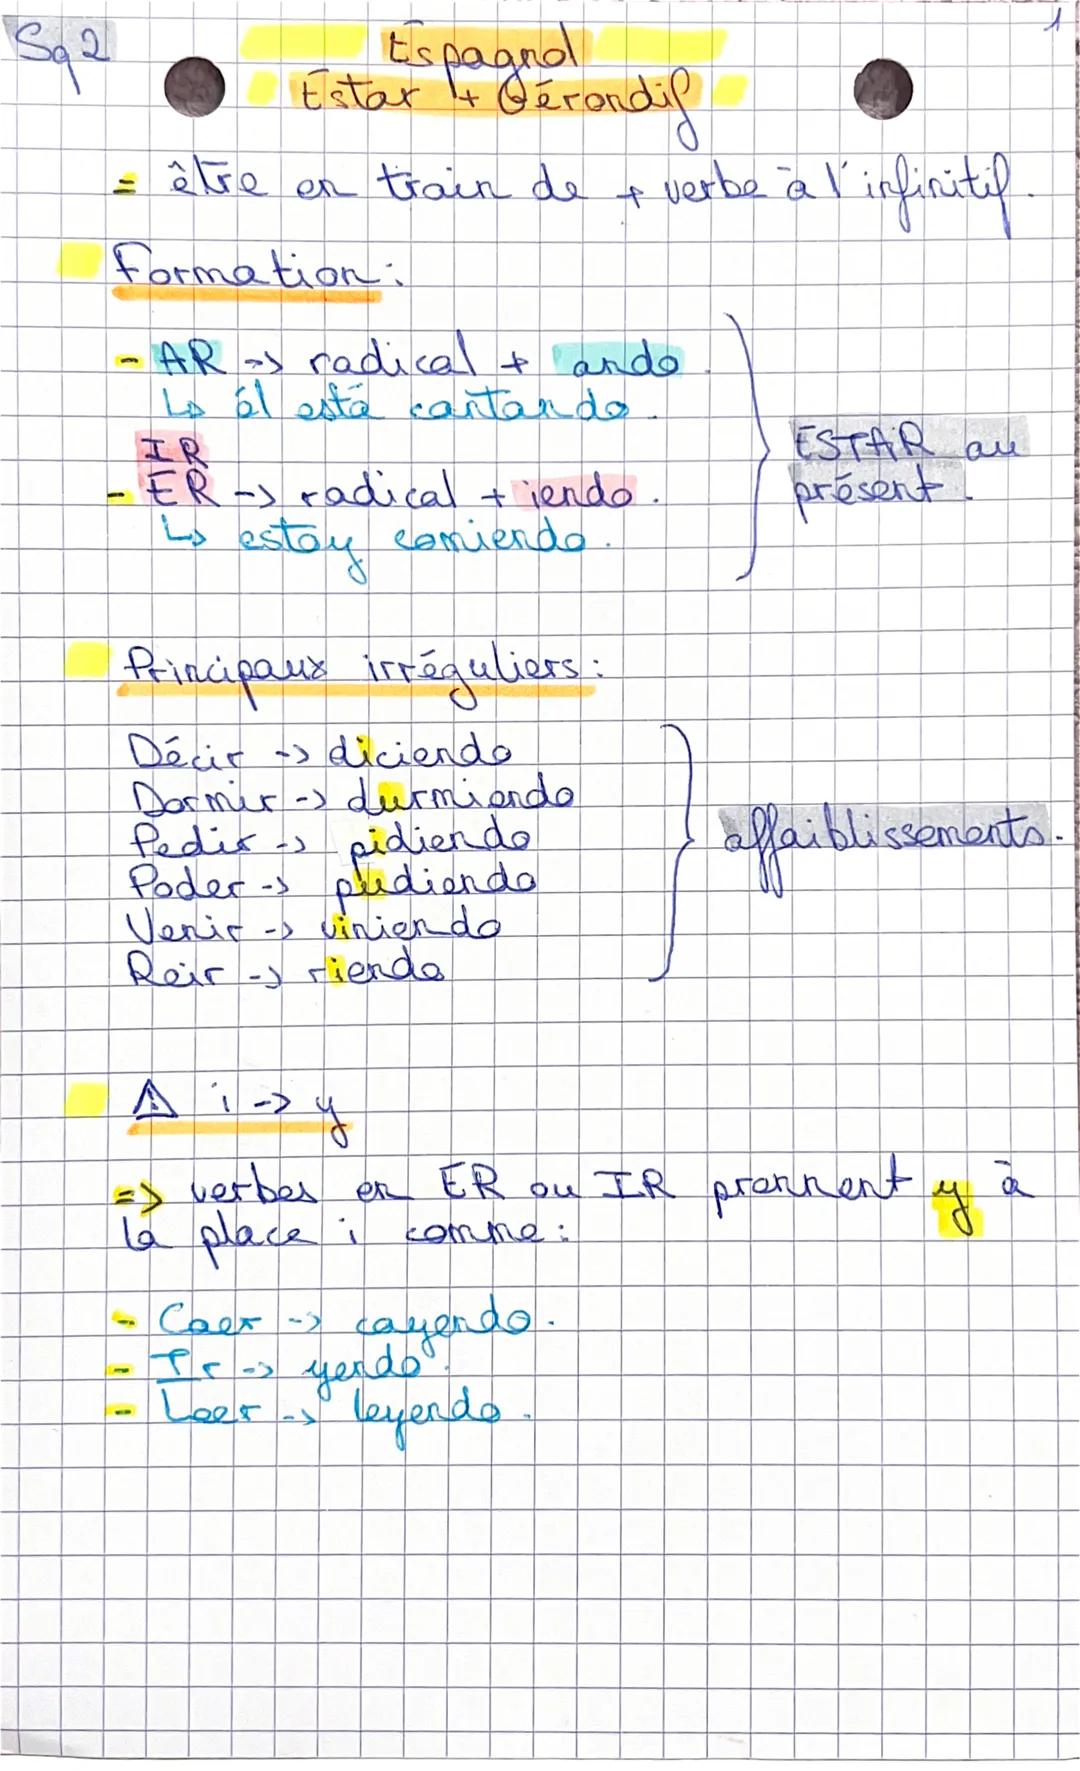 Sq 2
1
Espagnol
Estar + Gérondif
= être en train de + verbe à l'infinitif.
Formation :
- AR -> radical + ando.
↳ él está cantando.
IR
- ER -> radical + iendo.
↳ estoy comiendo.
ESTAR au
présent.
Principaux irréguliers :
Décir -> diciendo
Dormir -> durmiendo
Pedir -> pidiendo
Poder -> pudiendo
Venir -> viniendo
Reir -> riendo
affaiblissements.
⚠ i -> y
=> verbes en ER ou IR prennent y à
la place i comme :
- Caer -> cayendo.
- Ir -> yendo.
- Leer -> leyendo.